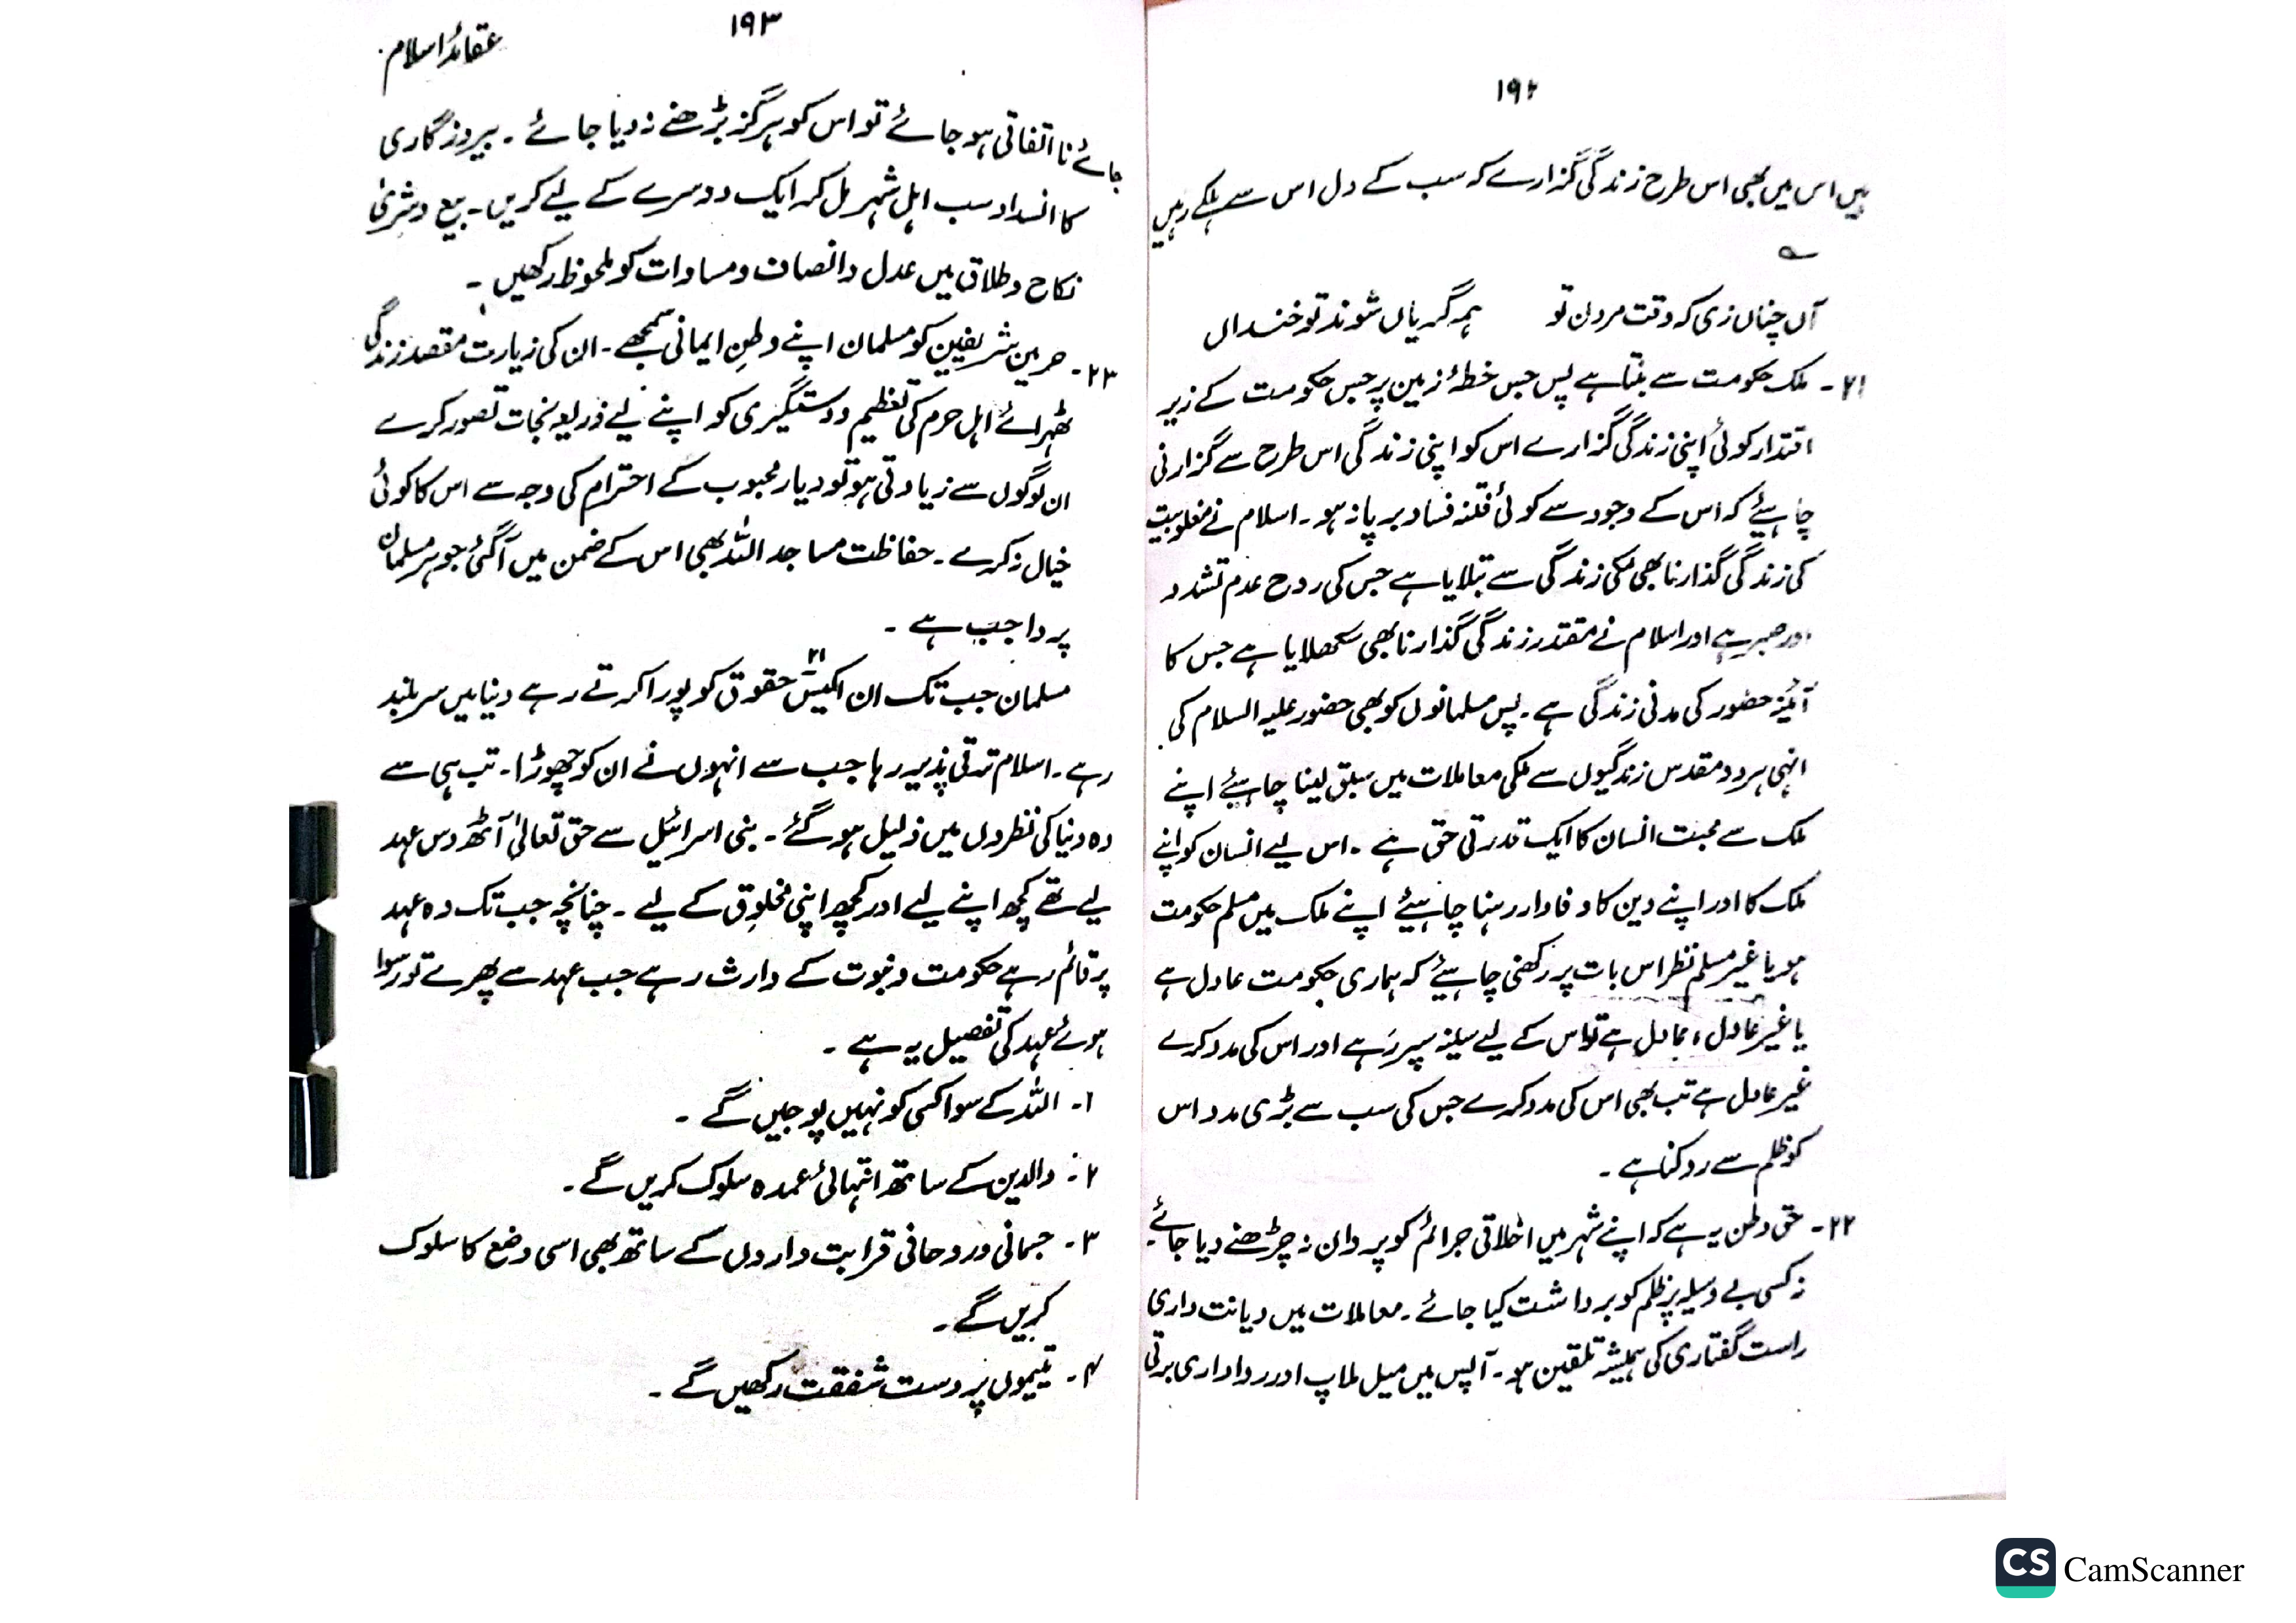 ۱۹۲
ہیں اس میں بھی اس طرح زندگی گزارے کہ سب کے دل اس سے ہلکے رہیں
؎
آں چناں زی کہ وقت مردن تو ہمہ گریاں شوند تو خنداں
۲۱۔ ملک حکومت سے بنتا ہے پس جس خطۂ زمین پر جس حکومت کے زیر
اقتدار کوئی اپنی زندگی گزارے اس کو اپنی زندگی اس طرح سے گزارنی
چاہیئے کہ اس کے وجود سے کوئی فتنہ فساد برپا نہ ہو۔ اسلام نے مغلوبیت
کی زندگی گذارنا بھی مکی زندگی سے بتلایا ہے جس کی روح عدم تشدد
اور صبر ہے اور اسلام نے مقتدر زندگی گذارنا بھی سکھلایا ہے جس کا
آئینہ حضور کی مدنی زندگی ہے۔ پس مسلمانوں کو بھی حضور علیہ السلام کی
انہی ہر دو مقدس زندگیوں سے ملکی معاملات میں سبق لینا چاہیئے اپنے
ملک سے محبت انسان کا ایک قدرتی حق ہے۔ اس لیے انسان کو اپنے
ملک کا اور اپنے دین کا وفادار رہنا چاہیئے اپنے ملک میں مسلم حکومت
ہو یا غیر مسلم نظر اس بات پر رکھنی چاہیئے کہ ہماری حکومت عادل ہے
یا غیر عادل، عادل ہے تو اس کے لیے سینہ سپر رہے اور اس کی مدد کرے
غیر عادل ہے تب بھی اس کی مدد کرے جس کی سب سے بڑی مدد اس
کو ظلم سے روکنا ہے۔
۲۲۔ حق وطن یہ ہے کہ اپنے شہر میں اخلاقی جرائم کو پروان نہ چڑھنے دیا جائے
نہ کسی بے وسیلہ پر ظلم کو برداشت کیا جائے۔ معاملات میں دیانت داری
راست گفتاری کی ہمیشہ تلقین ہو۔ آپس میں میل ملاپ اور رواداری برتی
۱۹۳
عقائد اسلام
جائے نا اتفاقی ہو جائے تو اس کو ہرگز بڑھنے نہ دیا جائے۔ بیروزگاری
کا انسداد سب اہل شہر مل کر ایک دوسرے کے لیے کریں۔ بیع و شریٰ
نکاح و طلاق میں عدل و انصاف و مساوات کو ملحوظ رکھیں۔
۲۳۔ حرمین شریفین کو مسلمان اپنے وطنِ ایمانی سمجھے۔ ان کی زیارت مقصد زندگی
ٹھہرائے اہل حرم کی تعظیم و دستگیری کو اپنے لیے ذریعہ نجات تصور کرے
ان لوگوں سے زیادتی ہو تو دیار محبوب کے احترام کی وجہ سے اس کا کوئی
خیال نہ کرے۔ حفاظت مساجد اللہ بھی اس کے ضمن میں آگئی جو ہر مسلمان
پر واجب ہے۔
مسلمان جب تک ان اکیس ۲۱ حقوق کو پورا کرتے رہے دنیا میں سر بلند
رہے۔ اسلام ترقی پذیر رہا جب سے انہوں نے ان کو چھوڑا۔ تب ہی سے
وہ دنیا کی نظروں میں ذلیل ہو گئے۔ بنی اسرائیل سے حق تعالیٰ آٹھ دس عہد
لیے تھے کچھ اپنے لیے اور کچھ اپنی مخلوق کے لیے۔ چنانچہ جب تک وہ عہد
پر قائم رہے حکومت و نبوت کے وارث رہے جب عہد سے پھرے تو رسوا
ہوئے عہد کی تفصیل یہ ہے۔
۱۔ اللہ کے سوا کسی کو نہیں پوجیں گے۔
۲۔ والدین کے ساتھ انتہائی عمدہ سلوک کریں گے۔
۳۔ جسمانی و روحانی قرابت داروں کے ساتھ بھی اسی وضع کا سلوک
کریں گے۔
۴۔ یتیموں پر دست شفقت رکھیں گے۔
CS CamScanner